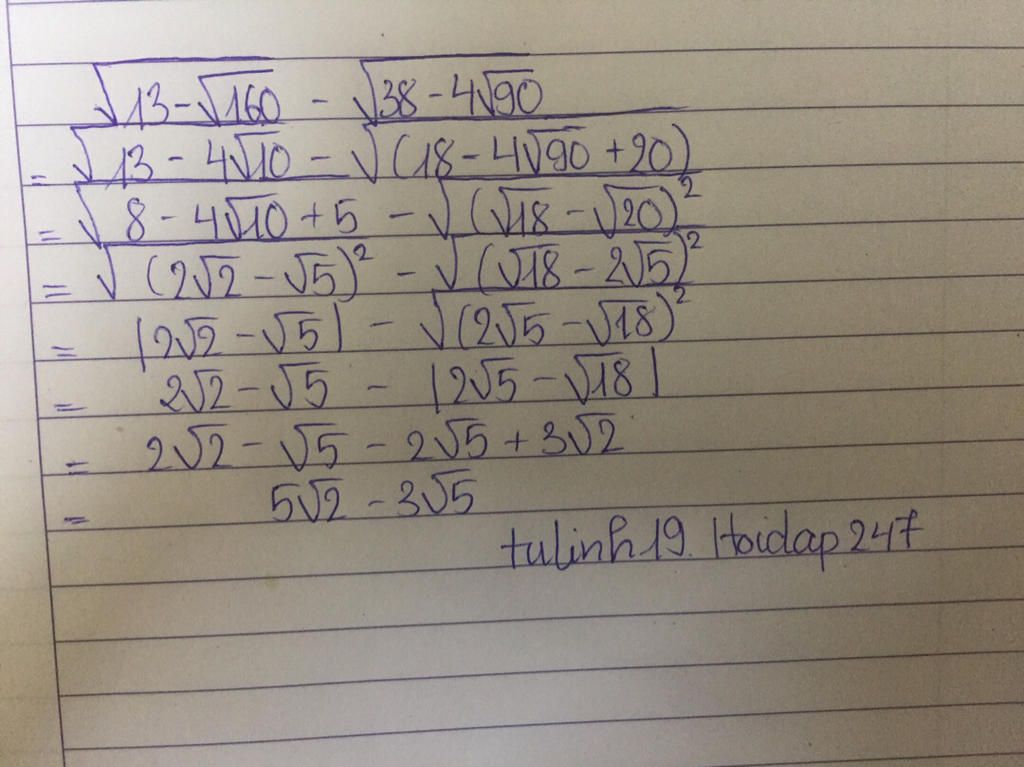 √(13-√160) - √(38-4√90)
= √(13-4√10) - √((18-4√90+20))
= √(8-4√10+5) - √((√18-√20)²)
= √((2√2-√5)²) - √((√18-2√5)²)
= |2√2-√5| - √((2√5-√18)²)
= 2√2-√5 - |2√5-√18|
= 2√2-√5-2√5+3√2
= 5√2-3√5
tulinh19. Hoidap247